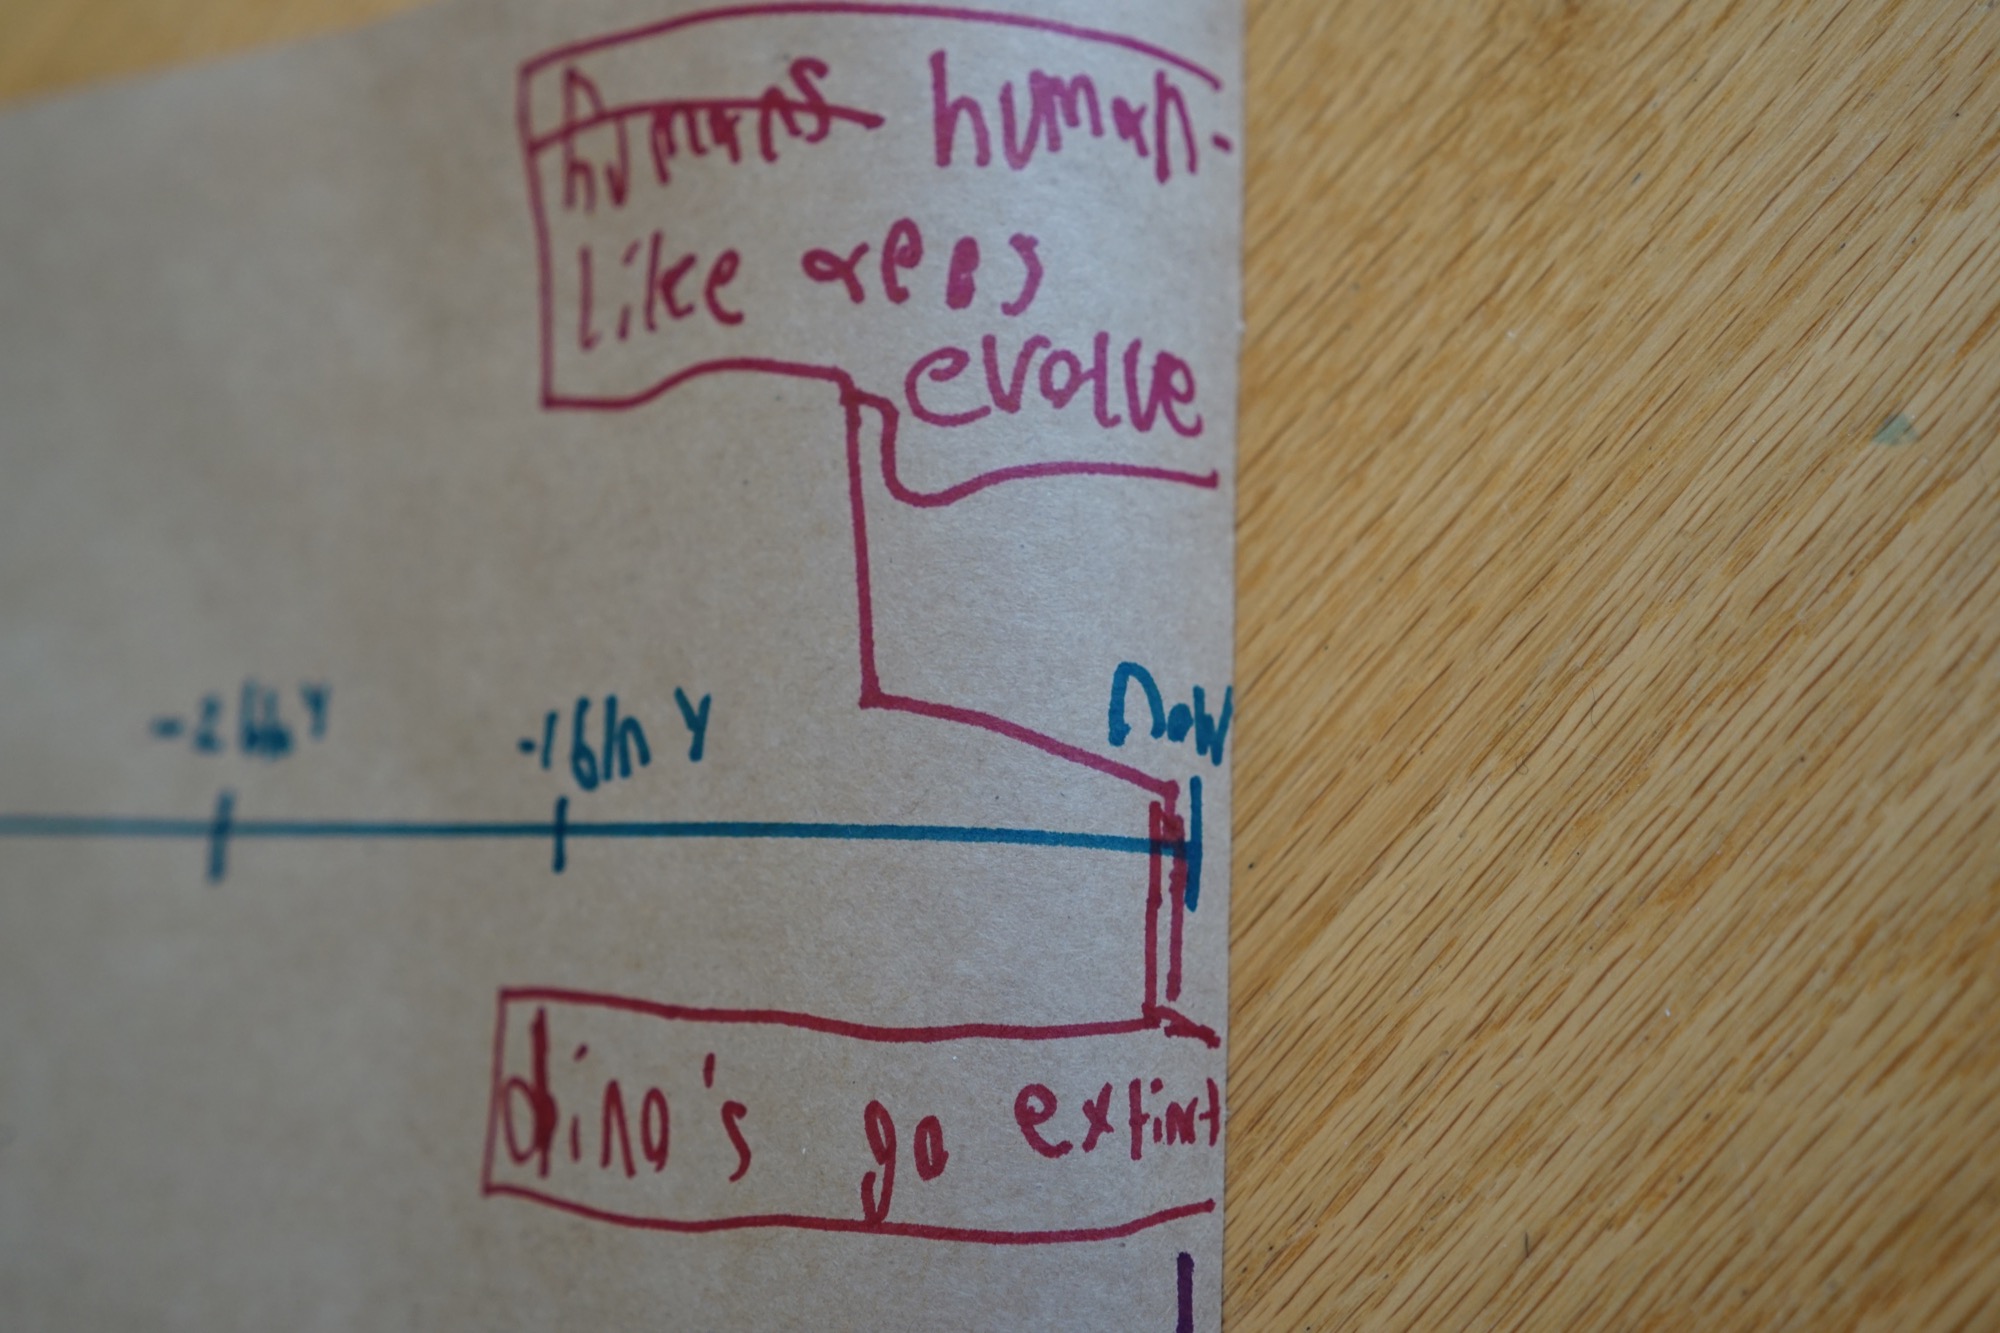 ~~humans~~ human-
like apes
evolve
-2 bln y
-1 bln y
now
dino's go extinct